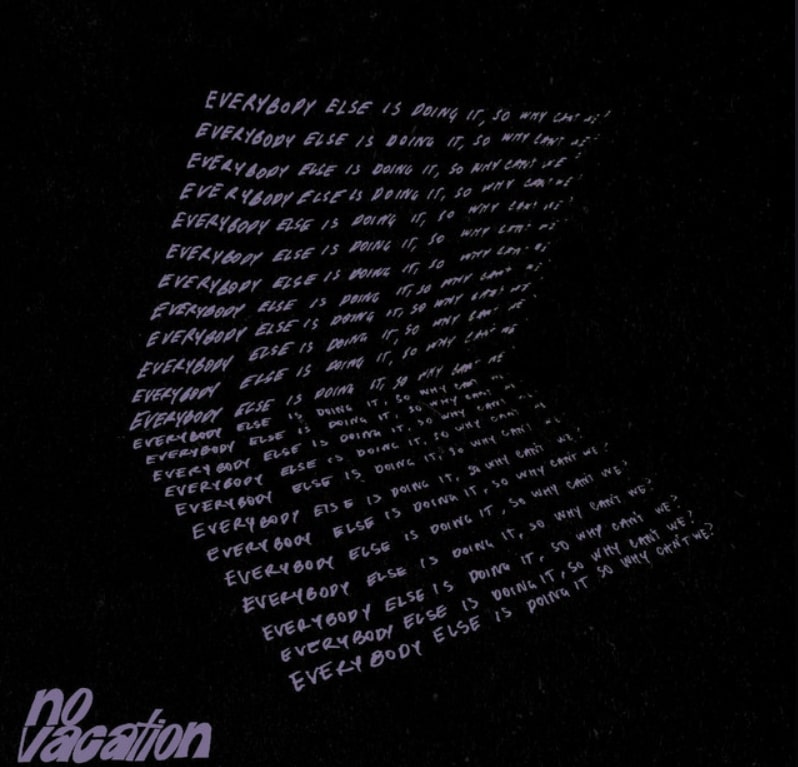 EVERYBODY ELSE IS DOING IT, SO WHY CAN'T WE?
EVERYBODY ELSE IS DOING IT, SO WHY CAN'T WE?
EVERYBODY ELSE IS DOING IT, SO WHY CAN'T WE?
EVERYBODY ELSE IS DOING IT, SO WHY CAN'T WE?
EVERYBODY ELSE IS DOING IT, SO WHY CAN'T WE?
EVERYBODY ELSE IS DOING IT, SO WHY CAN'T WE?
EVERYBODY ELSE IS DOING IT, SO WHY CAN'T WE?
EVERYBODY ELSE IS DOING IT, SO WHY CAN'T WE?
EVERYBODY ELSE IS DOING IT, SO WHY CAN'T WE
EVERYBODY ELSE IS DOING IT, SO WHY CAN'T WE
EVERYBODY ELSE IS DOING IT, SO WHY CAN'T WE
EVERYBODY ELSE IS DOING IT, SO WHY CAN'T WE
EVERYBODY ELSE IS DOING IT, SO WHY CAN'T WE
EVERYBODY ELSE IS DOING IT, SO WHY CAN'T WE
EVERYBODY ELSE IS DOING IT, SO WHY CAN'T WE
EVERYBODY ELSE IS DOING IT, SO WHY CAN'T WE
EVERYBODY ELSE IS DOING IT, SO WHY CAN'T WE?
EVERYBODY ELSE IS DOING IT, SO WHY CAN'T WE?
EVERYBODY ELSE IS DOING IT, SO WHY CAN'T WE?
EVERYBODY ELSE IS DOING IT, SO WHY CAN'T WE?
EVERYBODY ELSE IS DOING IT, SO WHY CAN'T WE?
EVERYBODY ELSE IS DOING IT, SO WHY CAN'T WE?
EVERYBODY ELSE IS DOING IT, SO WHY CAN'T WE?
EVERYBODY ELSE IS DOING IT SO WHY CAN'T WE?
no
vacation